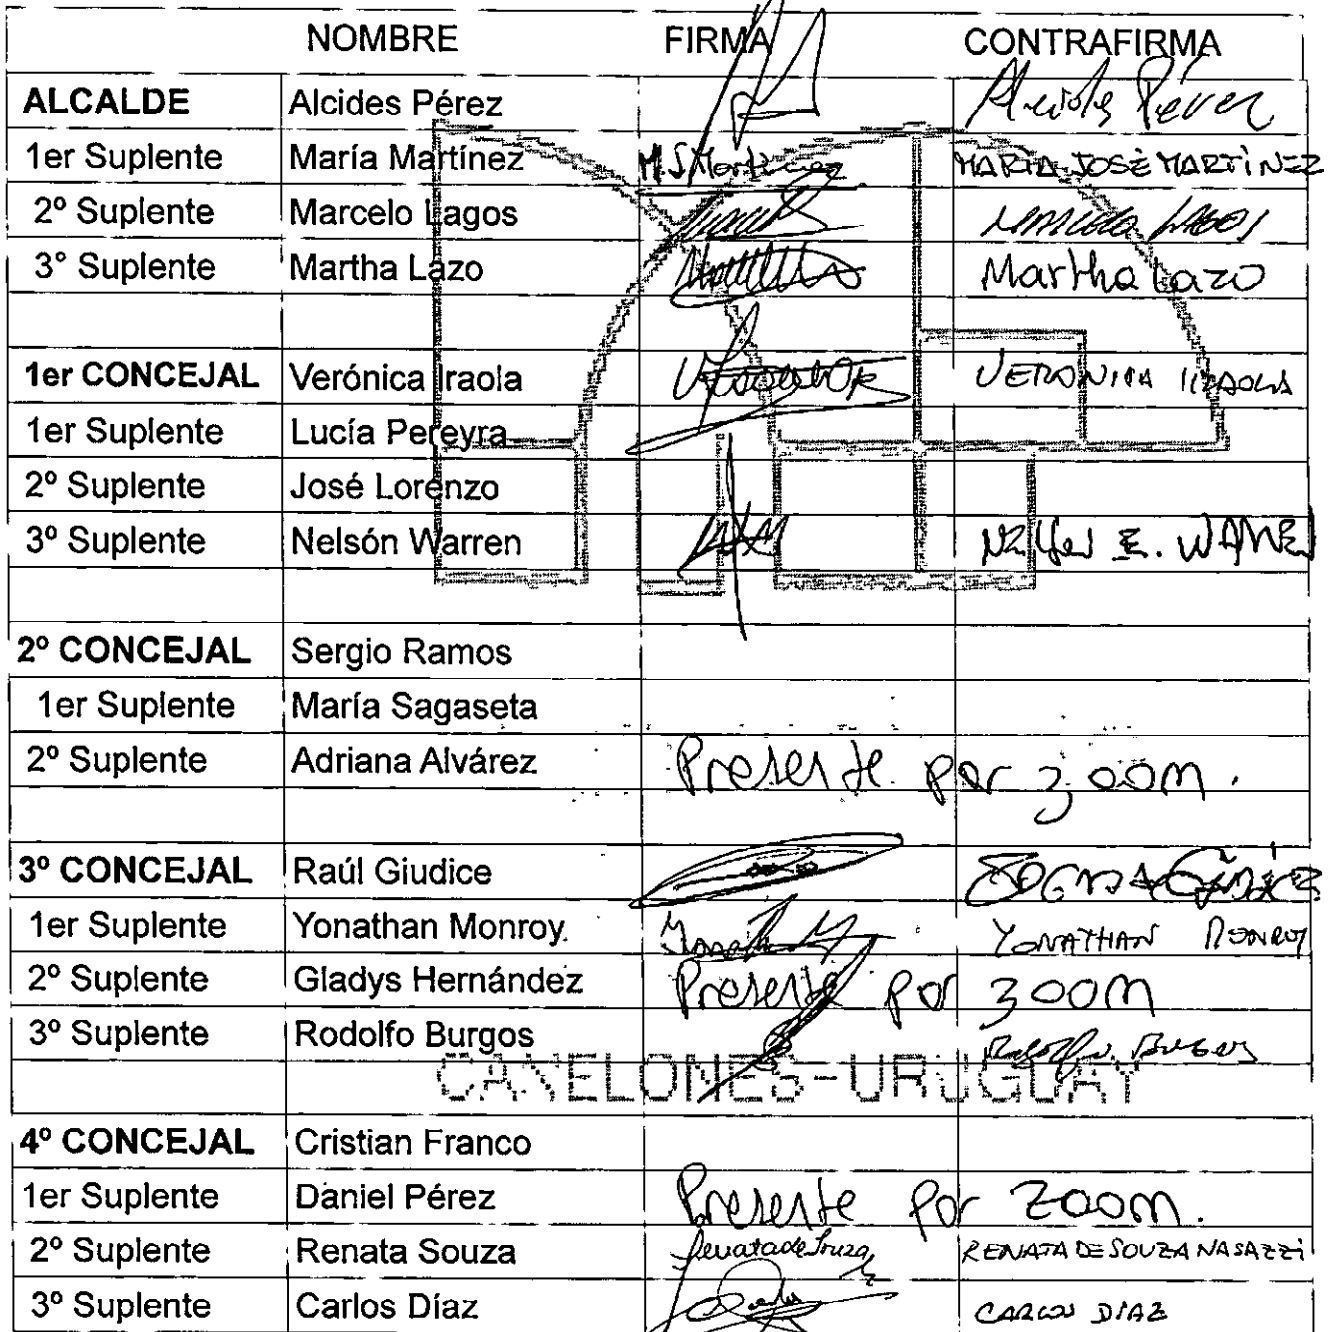 NOMBRE FIRMA CONTRAFIRMA
ALCALDE Alcides Pérez Alcides Pérez
1er Suplente María Martínez M.J.Martínez MARÍA JOSÉ MARTÍNEZ
2º Suplente Marcelo Lagos MARCELO LAGOS
3° Suplente Martha Lazo Martha Lazo
1er CONCEJAL Verónica Iraola VERONICA IRAOLA
1er Suplente Lucía Pereyra
2º Suplente José Lorenzo
3º Suplente Nelsón Warren E. WARREN
2º CONCEJAL Sergio Ramos
1er Suplente María Sagaseta
2º Suplente Adriana Alvárez Presente por zoom.
3º CONCEJAL Raúl Giudice
1er Suplente Yonathan Monroy. YONATHAN MONROY
2º Suplente Gladys Hernández Presente por zoom
3º Suplente Rodolfo Burgos Rodolfo Burgos
CANELONES-URUGUAY
4º CONCEJAL Cristian Franco
1er Suplente Daniel Pérez Presente por zoom.
2º Suplente Renata Souza Renata de Souza RENATA DE SOUZA NASAZZI
3º Suplente Carlos Díaz CARLOS DIAZ